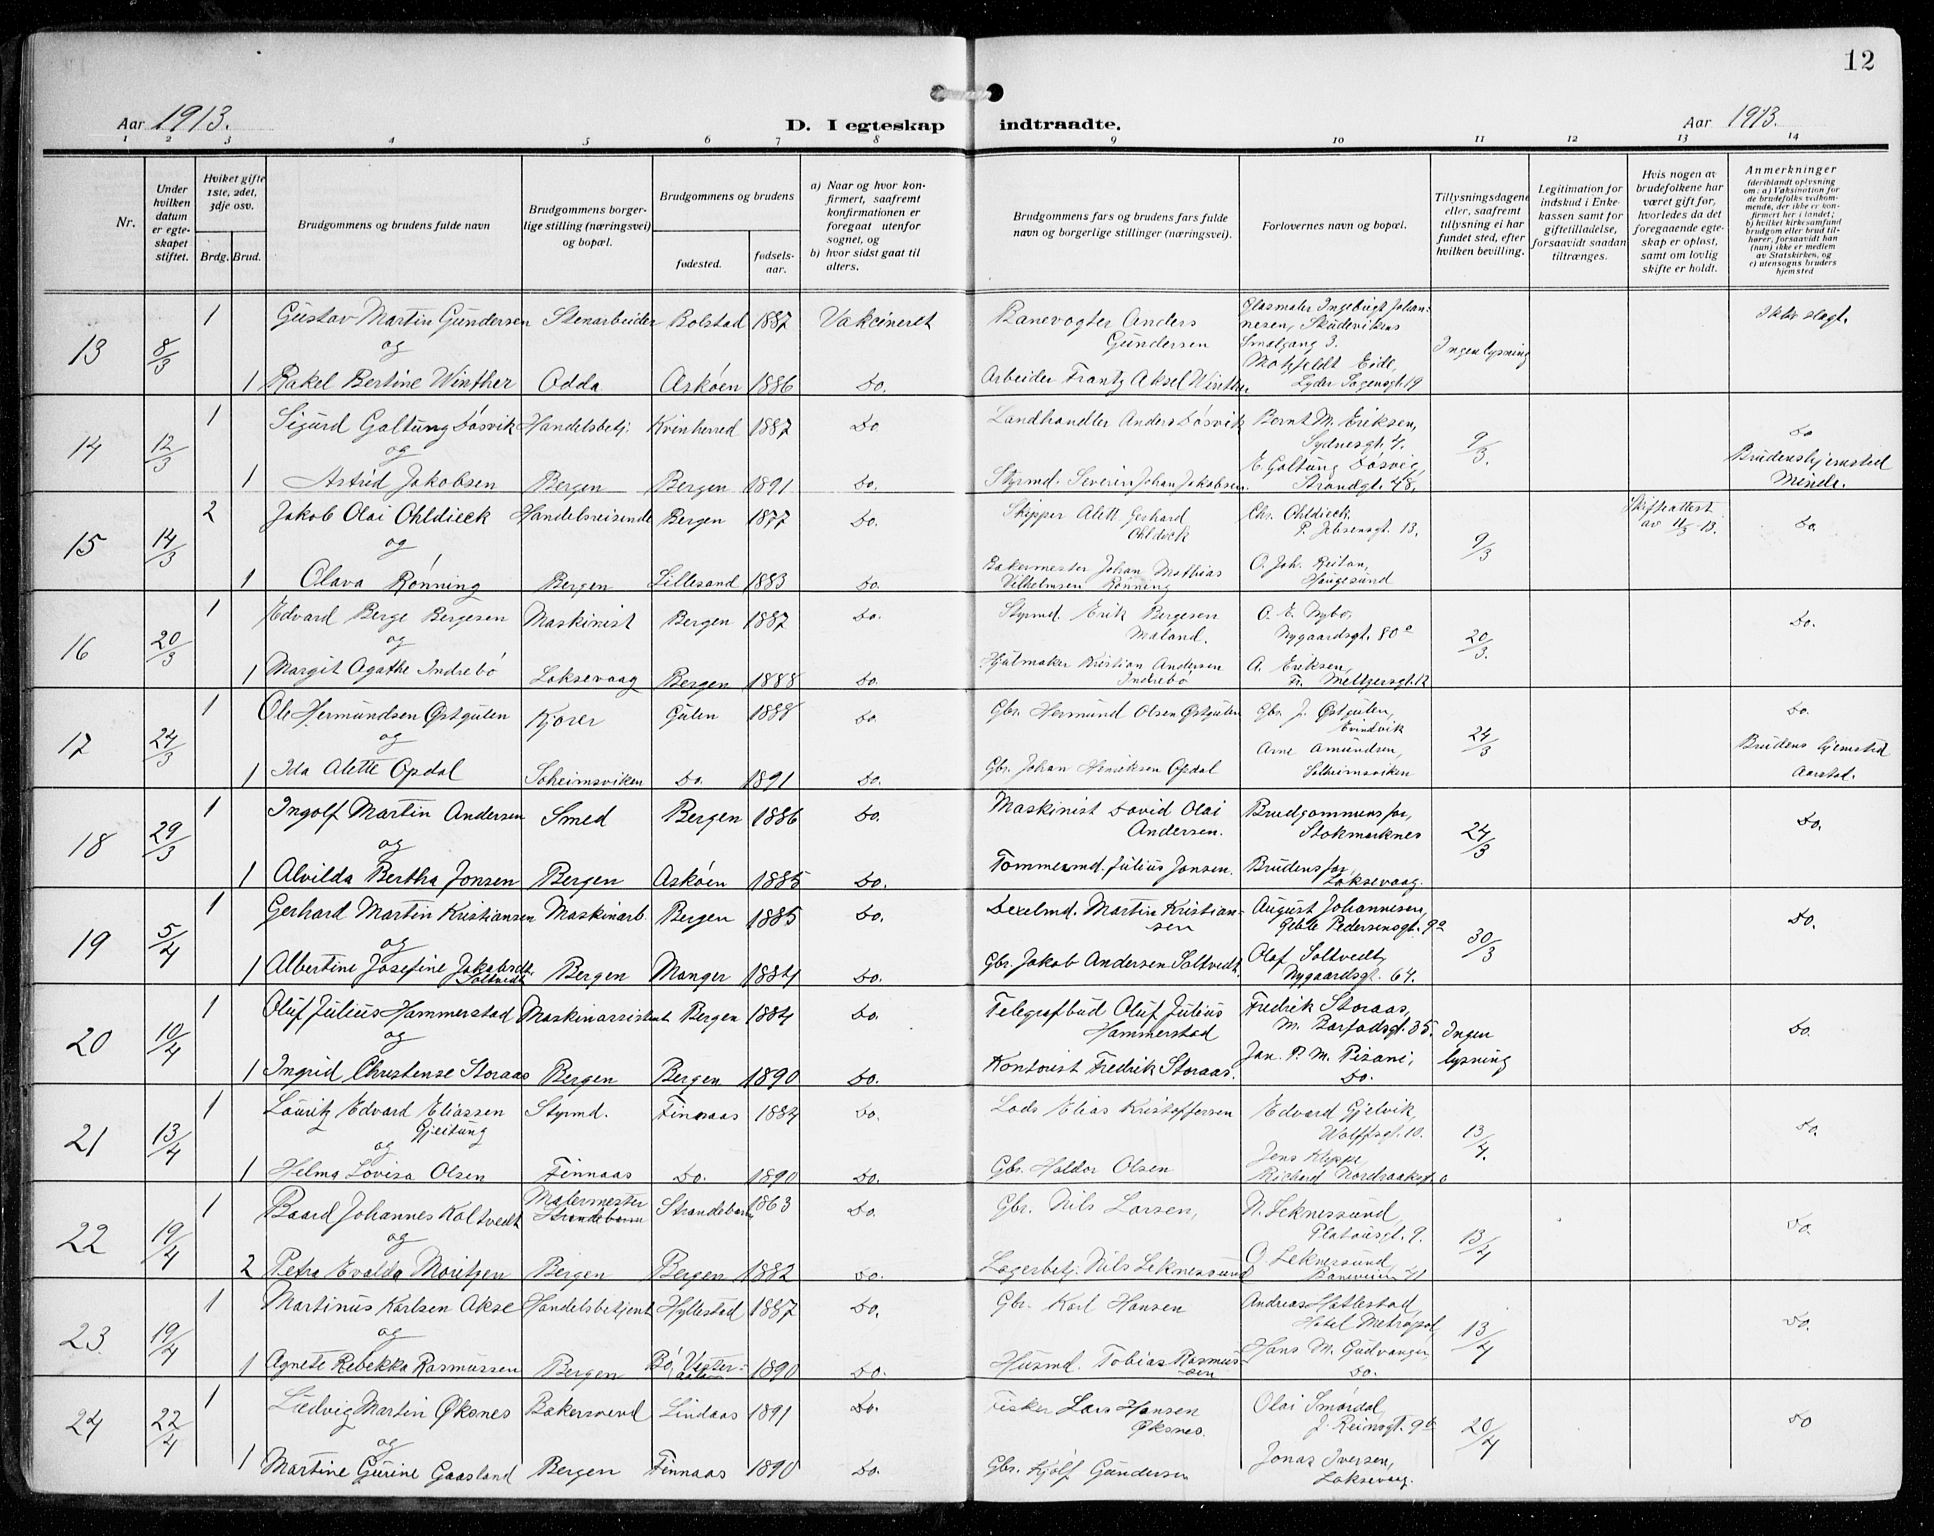 12
Aar 1913.
D. I egteskap indtraadte.
Aar 1913.
1 2 3 4 5 6 7 8 9 10 11 12 13 14
Nr.
Under hvilken datum er egteskapet stiftet.
Hvilket gifte 1ste, 2det, 3dje osv.
Brdg. Brud.
Brudgommens og brudens fulde navn
Brudgommens borgerlige stilling (næringsvei) og bopæl.
Brudgommens og brudens
fødested.
fødselsaar.
a) Naar og hvor konfirmert, saafremt konfirmationen er foregaat utenfor sognet, og
b) hvor sidst gaat til alters.
Brudgommens fars og brudens fars fulde navn og borgerlige stillinger (næringsvei).
Forlovernes navn og bopæl.
Tillysningsdagene eller, saafremt tillysning ei har fundet sted, efter hvilken bevilling.
Legitimation for indskud i Enkekassen samt for giftetilladelse, forsaavidt saadan tiltrænges.
Hvis nogen av brudefolkene har været gift før, hvorledes da det foregaaende egteskap er opløst, samt om lovlig skifte er holdt.
Anmerkninger (deriblandt oplysning om: a) Vaksination for de brudefolks vedkommende, der ikke er konfirmert her i landet; b) hvilket kirkesamfund brudgom eller brud tilhører, forsaavidt han (hun) ikke er medlem av Statskirken, og c) utensogns bruders hjemsted
13 8/3 1 Gustav Martin Gundersen Stenarbeider Bolstad 1887 Vakcineret Banevogter Anders Gundersen Glasmaler Ingebrigt Johannesen, Skudevikens Smalgang 3. Ingen lysning Ikke slegt.
og
1 Rakel Bertine Winther Odda Askøen 1886 Do. Arbeider Frantz Aksel Winther Motzfeldt Eide, Lyder Sagensgt. 19
14 12/3 1 Sigurd Galtung Døsvik Handelsbetj. Kvinherred 1887 Do Landhandler Anders Døsvik Bernt M. Eriksen, Sydnesgt. 4. 9/3. Do
og
1 Astrid Jakobsen Bergen Bergen 1891 Do. Styrmd. Severin Johan Jakobsen. E. Galtung Døsvig, Strandgt. 48, Brudens hjemsted Minde.
15 14/3 2 Jakob Olai Ohldieck Handelsreisende Bergen 1877 Do. Skipper Alett Gerhard Ohldieck Chr. Ohldieck P. Jebsensgt. 13. 9/3 Skifteattest av 11/3 13. Do.
og
1 Olava Rønning Bergen Lillesand 1883 Do. Bakermester Johan Mathias Vilhelmsen Rønning O. Joh. Reitan, Haugesund
16 20/3 1 Edvard Berge Bergesen Maskinist Bergen 1887 Do. Styrmd. Erik Bergesen Maland. O. E. Nybø, Nygaardsgt. 80c 20/3. Do.
og
1 Margit Agathe Indrebø Laksevaag Bergen 1888 Do. Hjulmaker Kristian Andersen Indrebø A. Eriksen, Fr. Meltzersgt. 12
17 24/3 1 Ole Hermundsen Østgulen Kjører Gulen 1888 Do. Gbr. Hermund Olsen Østgulen Gbr. J. Østgulen, Evindvik 24/3 Do.
og
1 Ida Alette Opdal Solheimsviken Do. 1891 Do. Gbr. Johan Henriksen Opdal Arne Amundsen, Solheimsviken Brudens hjemsted Aarstad.
18 29/3 1 Ingolf Martin Andersen Smed Bergen 1886 Do. Maskinist David Olai Andersen. Brudgommens far, Stokmarknes 24/3 Do.
og
1 Alvilda Bertha Jonsen Bergen Askøen 1885 Do. Tømmermd. Julius Jonsen. Brudens far, Laksevaag.
19 5/4 1 Gerhard Martin Kristiansen Maskinarb. Bergen 1885 Do. Dexelmd. Martin Kristiansen August Johannesen, Geble Pedersensgt. 9a 30/3 Do.
og
1 Albertine Josefine Jakobsdt. Soltvedt Bergen Manger 1884 Do. Gbr. Jakob Andersen Soltvedt. Olaf Soltvedt, Nygaardsgt. 64.
20 10/4 1 Oluf Julius Hammerstad Maskinassistent Bergen 1884 Do. Telegrafbud Oluf Julius Hammerstad Fredrik Storaas, M. Barfodsgt. 35. Ingen lysning Do.
og
1 Ingrid Christense Storaas Bergen Bergen 1890 Do. Kontorist Fredrik Storaas. Jan. P. M. Pisani, Do.
21 13/4 1 Lauritz Edvard Eliassen Gjeitung Styrmd. Finnaas 1884 Do. Lods Elias Kristoffersen Edvard Gjelvik, Wolffsgt. 10. 13/4. Do.
og
1 Helma Lovisa Olsen Finnaas Do. 1890 Do. Gbr. Haldor Olsen Jens Kleppe, Richard Nordraaksgt. 0
22 19/4 1 Baard Johannes Koltvedt Malermester Strandebarm Strandebarm 1863 Do. Gbr. Nils Larsen, N. Leknessund, Platousgt. 9. 13/4 Do.
og
2 Petra Evalda Moritzen Bergen Bergen 1882 Do. Lagerbetj. Nils Leknessund O. Leknessund, Baneveien 41
23 19/4 1 Martinus Karlsen Akse Handelsbetjent Hyllestad 1887 Do. Gbr. Karl Hansen Andreas Hatlestad, Hotel Metropol, 13/4 Do.
og
1 Agnete Rebekka Rasmussen Bergen Bø, Vesteraalen 1890 Do. Husmd. Tobias Rasmussen Hans M. Gudvangen, Do.
24 22/4 1 Ludvig Martin Øksnes Bakersvend Lindaas 1891 Do. Fisker Lars Hansen Øksnes. Olai Smørdal, J. Reinsgt. 9b 20/4 Do
og
1 Martine Gurine Gaasland Bergen Finnaas 1890 Do. Gbr. Kjølf Gundersen Jonas Iversen, Laksevaag.